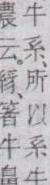 牛系、所以系牛
農云。絼、箸牛鼻